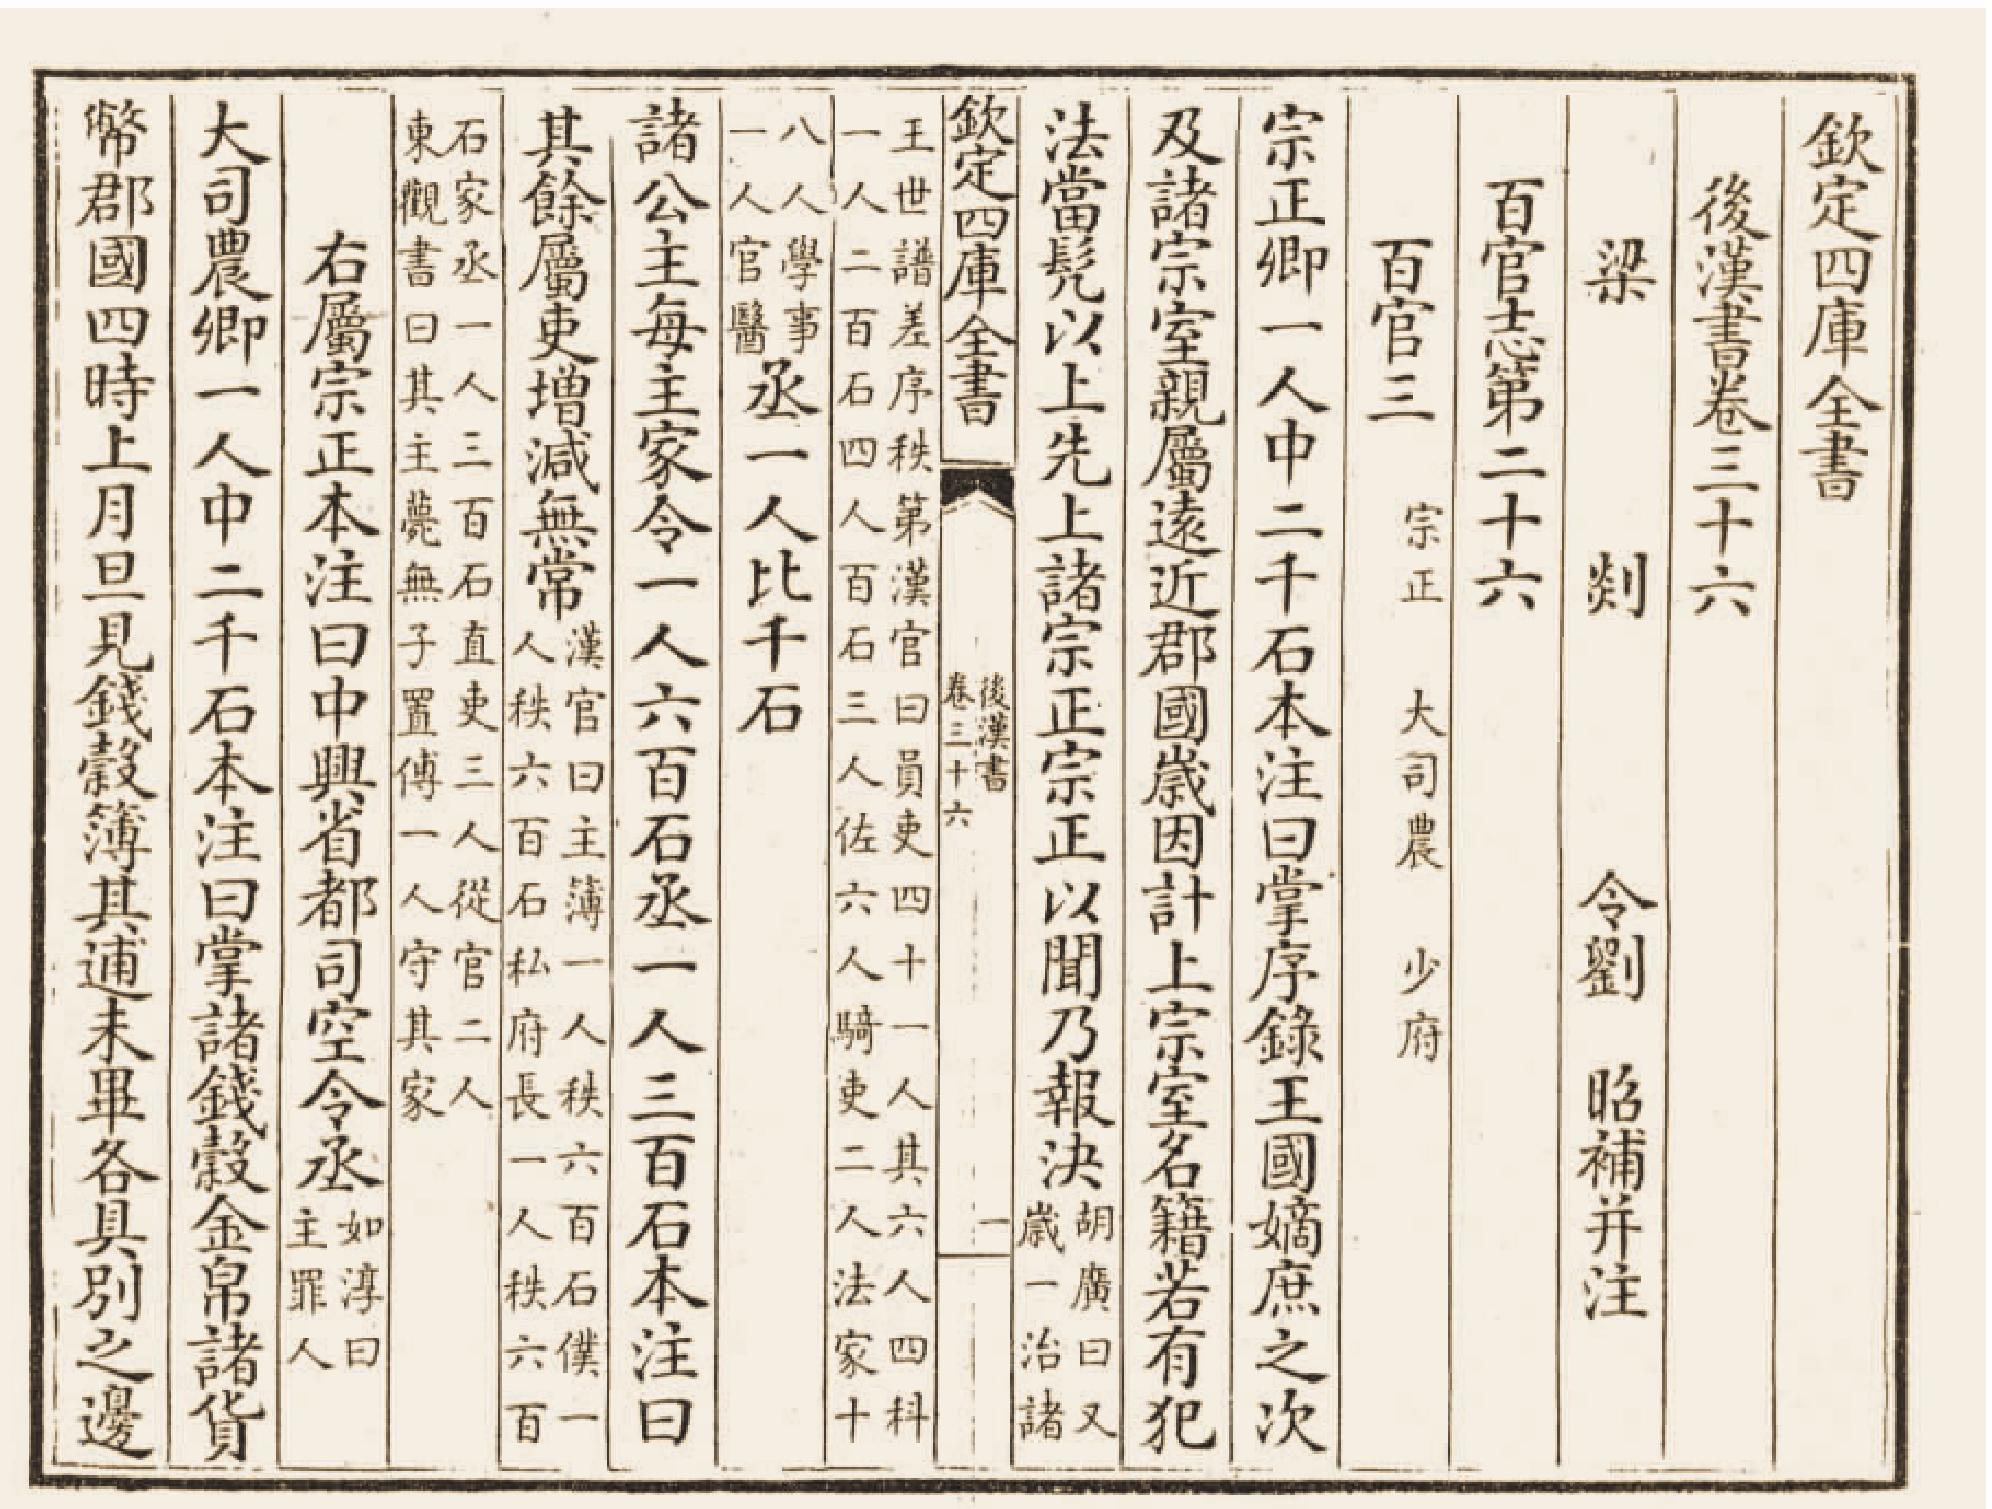 欽定四庫全書
後漢書卷三十六
梁 剡 令劉 昭補并注
百官志第二十六
百官三 宗正 大司農 少府
宗正卿一人中二千石本注曰掌序錄王國嫡庶之次
及諸宗室親屬遠近郡國歲因計上宗室名籍若有犯
法當髠以上先上諸宗正宗正以聞乃報決胡廣曰又
歲一治諸
欽定四庫全書
後漢書
卷三十六
一
王世譜差序秩第漢官曰員吏四十一人其六人四科
一人二百石四人百石三人佐六人騎吏二人法家十
八人學事
一人官醫丞一人比千石
諸公主每主家令一人六百石丞一人三百石本注曰
其餘屬吏增減無常漢官曰主簿一人秩六百石僕一
人秩六百石私府長一人秩六百
石家丞一人三百石直吏三人從官二人
東觀書曰其主薨無子置傅一人守其家
右屬宗正本注曰中興省都司空令丞如淳曰
主罪人
大司農卿一人中二千石本注曰掌諸錢穀金帛諸貨
幣郡國四時上月旦見錢穀簿其逋未畢各具別之邊